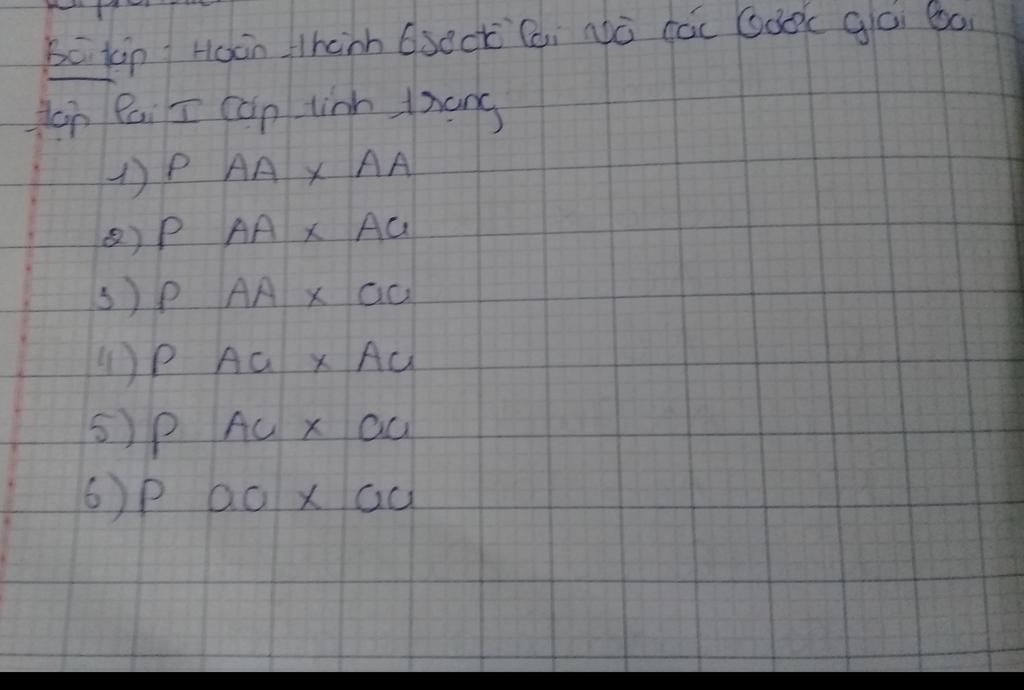 Bài tập: Hoàn thành 6 sơ đồ lai và các bước giải bài
tập lai 1 cặp tính trạng
1) P AA x AA
2) P AA x Aa
3) P AA x aa
4) P Aa x Aa
5) P Aa x aa
6) P aa x aa